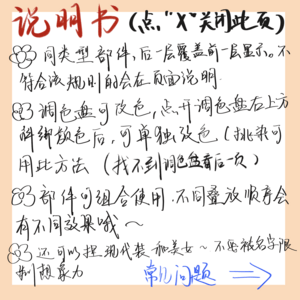 说明书(点"X"关闭此页)
同类型部件,后一层覆盖前一层显示。不
符合该规则的会在页面说明.
调色盘可改色,点开调色盘右上方
解绑颜色后,可单独改色(挑染可
用此方法(找不到调色盘看后一页)
部件可组合使用.不同叠放顺序会
有不同效果哦~
还可以捏现代装和美女~不要被名字限
制想象力
常见问题